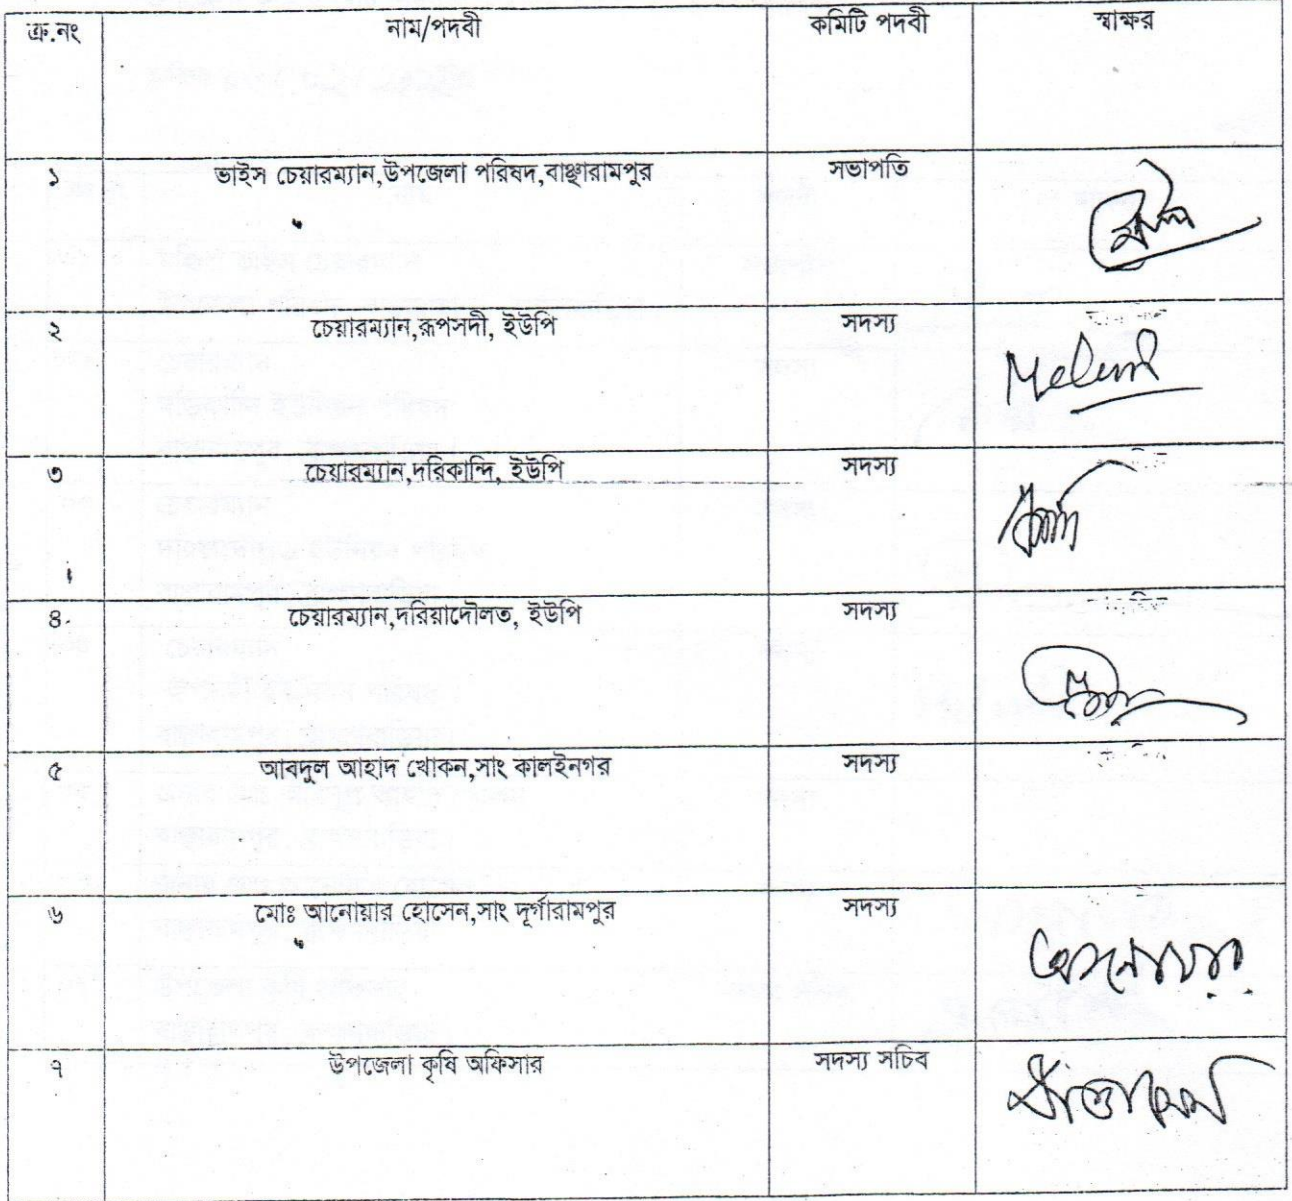 ক্র.নং নাম/পদবী কমিটি পদবী স্বাক্ষর
১ ভাইস চেয়ারম্যান,উপজেলা পরিষদ,বাঞ্ছারামপুর সভাপতি
২ চেয়ারম্যান,রূপসদী, ইউপি সদস্য
৩ চেয়ারম্যান,দরিকান্দি, ইউপি সদস্য
৪ চেয়ারম্যান,দরিয়াদৌলত, ইউপি সদস্য
৫ আবদুল আহাদ খোকন,সাং কালইনগর সদস্য
৬ মোঃ আনোয়ার হোসেন,সাং দূর্গারামপুর সদস্য আনোয়ার
৭ উপজেলা কৃষি অফিসার সদস্য সচিব